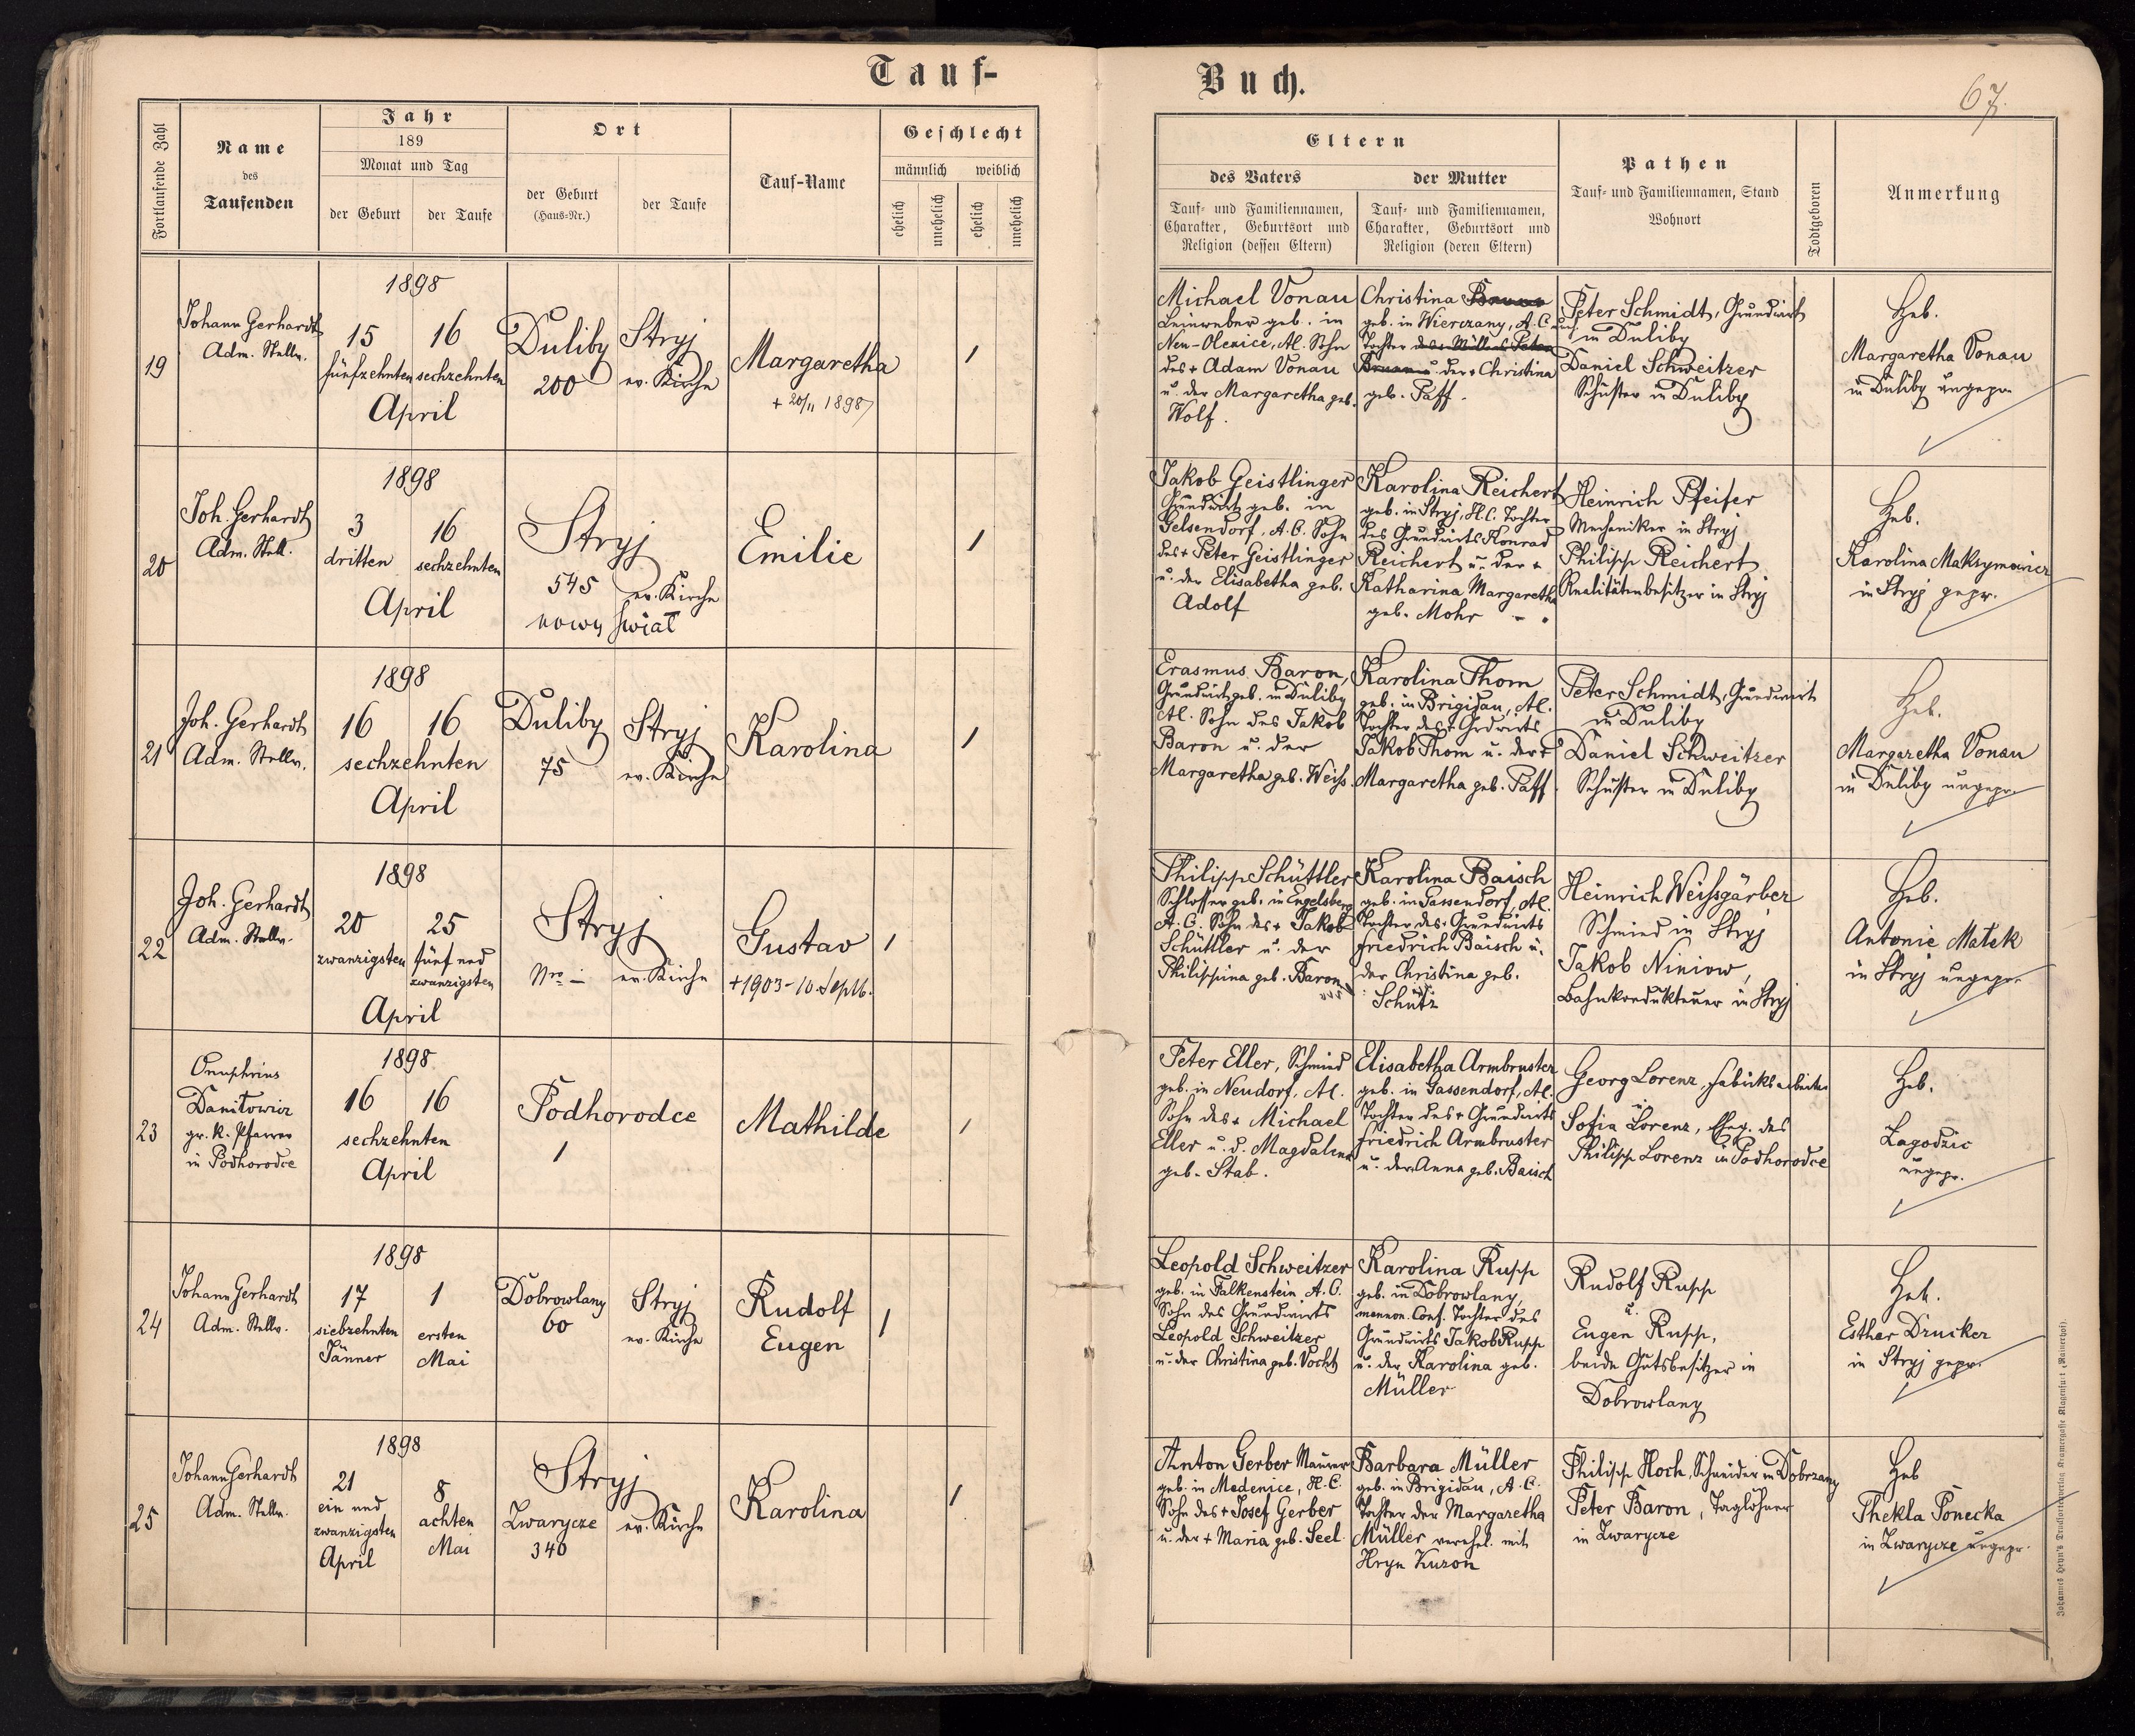 Tauf-
Buch.
67.
Fortlaufende Zahl
Name
des
Taufenden
Jahr
189
Monat und Tag
der Geburt
der Taufe
Ort
der Geburt
(Haus-Nr.)
der Taufe
Tauf-Name
Geschlecht
männlich
weiblich
ehelich
unehelich
ehelich
unehelich
Eltern
des Vaters
Tauf- und Familiennamen,
Charakter, Geburtsort und
Religion (dessen Eltern)
der Mutter
Tauf- und Familiennamen,
Charakter, Geburtsort und
Religion (deren Eltern)
Pathen
Tauf- und Familiennamen, Stand
Wohnort
Todtgeboren
Anmerkung
19
Johann Gerhardt
Adm. Stellv.
1898
15
fünfzehnten
16
sechzehnten
April
Duliby
200
Stryj
ev. Kirche
Margaretha
+ 20/11 1898
1
Michael Vonau
Leinweber geb. in
Neu-Olexice, A. Sohn
des + Adam Vonau
u. der Margaretha geb.
Wolf.
Christina
geb. in Wierczany, A.C.
Tochter des Peter
u. der + Christina
geb. Paff.
Peter Schmidt, Grundwirt
in Duliby
Daniel Schweitzer
Schuster in Duliby
Heb.
Margaretha Vonau
in Duliby ungepr.
20
Joh. Gerhardt
Adm. Stell.
1898
3
dritten
16
sechzehnten
April
Stryj
545
nowy świat
ev. Kirche
Emilie
1
Jakob Geistlinger
Grundwirt geb. in
Gelsendorf, A.C. Sohn
des + Peter Geistlinger
u. der Elisabetha geb.
Adolf
Karolina Reichert
geb. in Stryj, H.C. Tochter
des Grundwirts Konrad
Reichert u. der +
Katharina Margaretha
geb. Mohr
Heinrich Pfeifer
Mechaniker in Stryj
Philipp Reichert
Realitätenbesitzer in Stryj
Heb.
Karolina Maksymowicz
in Stryj gepr.
21
Joh. Gerhardt
Adm. Stellv.
1898
16
16
sechzehnten
April
Duliby
75
Stryj
ev. Kirche
Karolina
1
Erasmus Baron,
Grundwirt geb. in Duliby
A. Sohn des Jakob
Baron u. der
Margaretha geb. Weiss
Karolina Thom
geb. in Brigidau, A.
Tochter des + Grdwirts
Jakob Thom u. der +
Margaretha geb. Paff.
Peter Schmidt, Grundwirt
in Duliby
Daniel Schweitzer
Schuster in Duliby
Heb.
Margaretha Vonau
in Duliby ungepr.
22
Joh. Gerhardt
Adm. Stellv.
1898
20
zwanzigsten
25
fünf und
zwanzigsten
April
Stryj
Nro –
ev. Kirche
Gustav
+ 1903 - 10. Septb.
1
Philipp Schüttler
Schlosser geb. in Engelsberg
A.C. Sohn des + Jakob
Schüttler u. der
Philippina geb. Baron
Karolina Baisch
geb. in Gassendorf, A.
Tochter des + Grundwirts
Friedrich Baisch u.
der Christina geb.
Schütz
Heinrich Weissgärber
Schmied in Stryj
Jakob Niniow,
Bahnkondukteuer in Stryj
Heb.
Antonie Matek
in Stryj ungepr.
23
Onuphrius
Daniłowicz
gr. k. Pfarrer
in Podhorodce
1898
16
16
sechzehnten
April
Podhorodce
1
Mathilde
1
Peter Eller, Schmied
geb. in Neudorf, A.
Sohn des + Michael
Eller u. d. Magdalena
geb. Stab.
Elisabetha Armbruster
geb. in Gassendorf, A.
Tochter des + Grundwirts
Friedrich Armbruster
u. der Anna geb. Baisch
Georg Lorenz, Fabriksarbeiter
u.
Sofia Lorenz, Eheg. des
Philipp Lorenz in Podhorodce
Heb.
Lagodzic
ungepr.
24
Johann Gerhardt
Adm. Stellv.
1898
17
siebzehnten
Jänner
1
ersten
Mai
Dobrowlany
60
Stryj
ev. Kirche
Rudolf
Eugen
1
Leopold Schweitzer
geb. in Falkenstein A.C.
Sohn des Grundwirts
Leopold Schweitzer
u. der Christina geb. Vocht
Karolina Rupp
geb. in Dobrowlany,
mennon. Conf. Tochter des
Grundwirts Jakob Rupp
u. der Karolina geb.
Müller
Rudolf Rupp
u.
Eugen Rupp,
beide Gutsbesitzer in
Dobrowlany
Heb.
Esther Drucker
in Stryj gepr.
25
Johann Gerhardt
Adm. Stellv.
1898
21
ein und
zwanzigsten
April
8
achten
Mai
Stryj
Zwarycze
340
ev. Kirche
Karolina
1
Anton Gerber Maurer
geb. in Medenice, H.C.
Sohn des + Josef Gerber
u. der + Maria geb. Seel
Barbara Müller
geb. in Brigidau, A.C.
Tochter der Margaretha
Müller verehel. mit
Hryn Kuzon
Philipp Hoch, Schneider in Dobrzany
Peter Baron, Taglöhner
in Zwarycze
Heb
Thekla Ponecka
in Zwarycze ungepr.